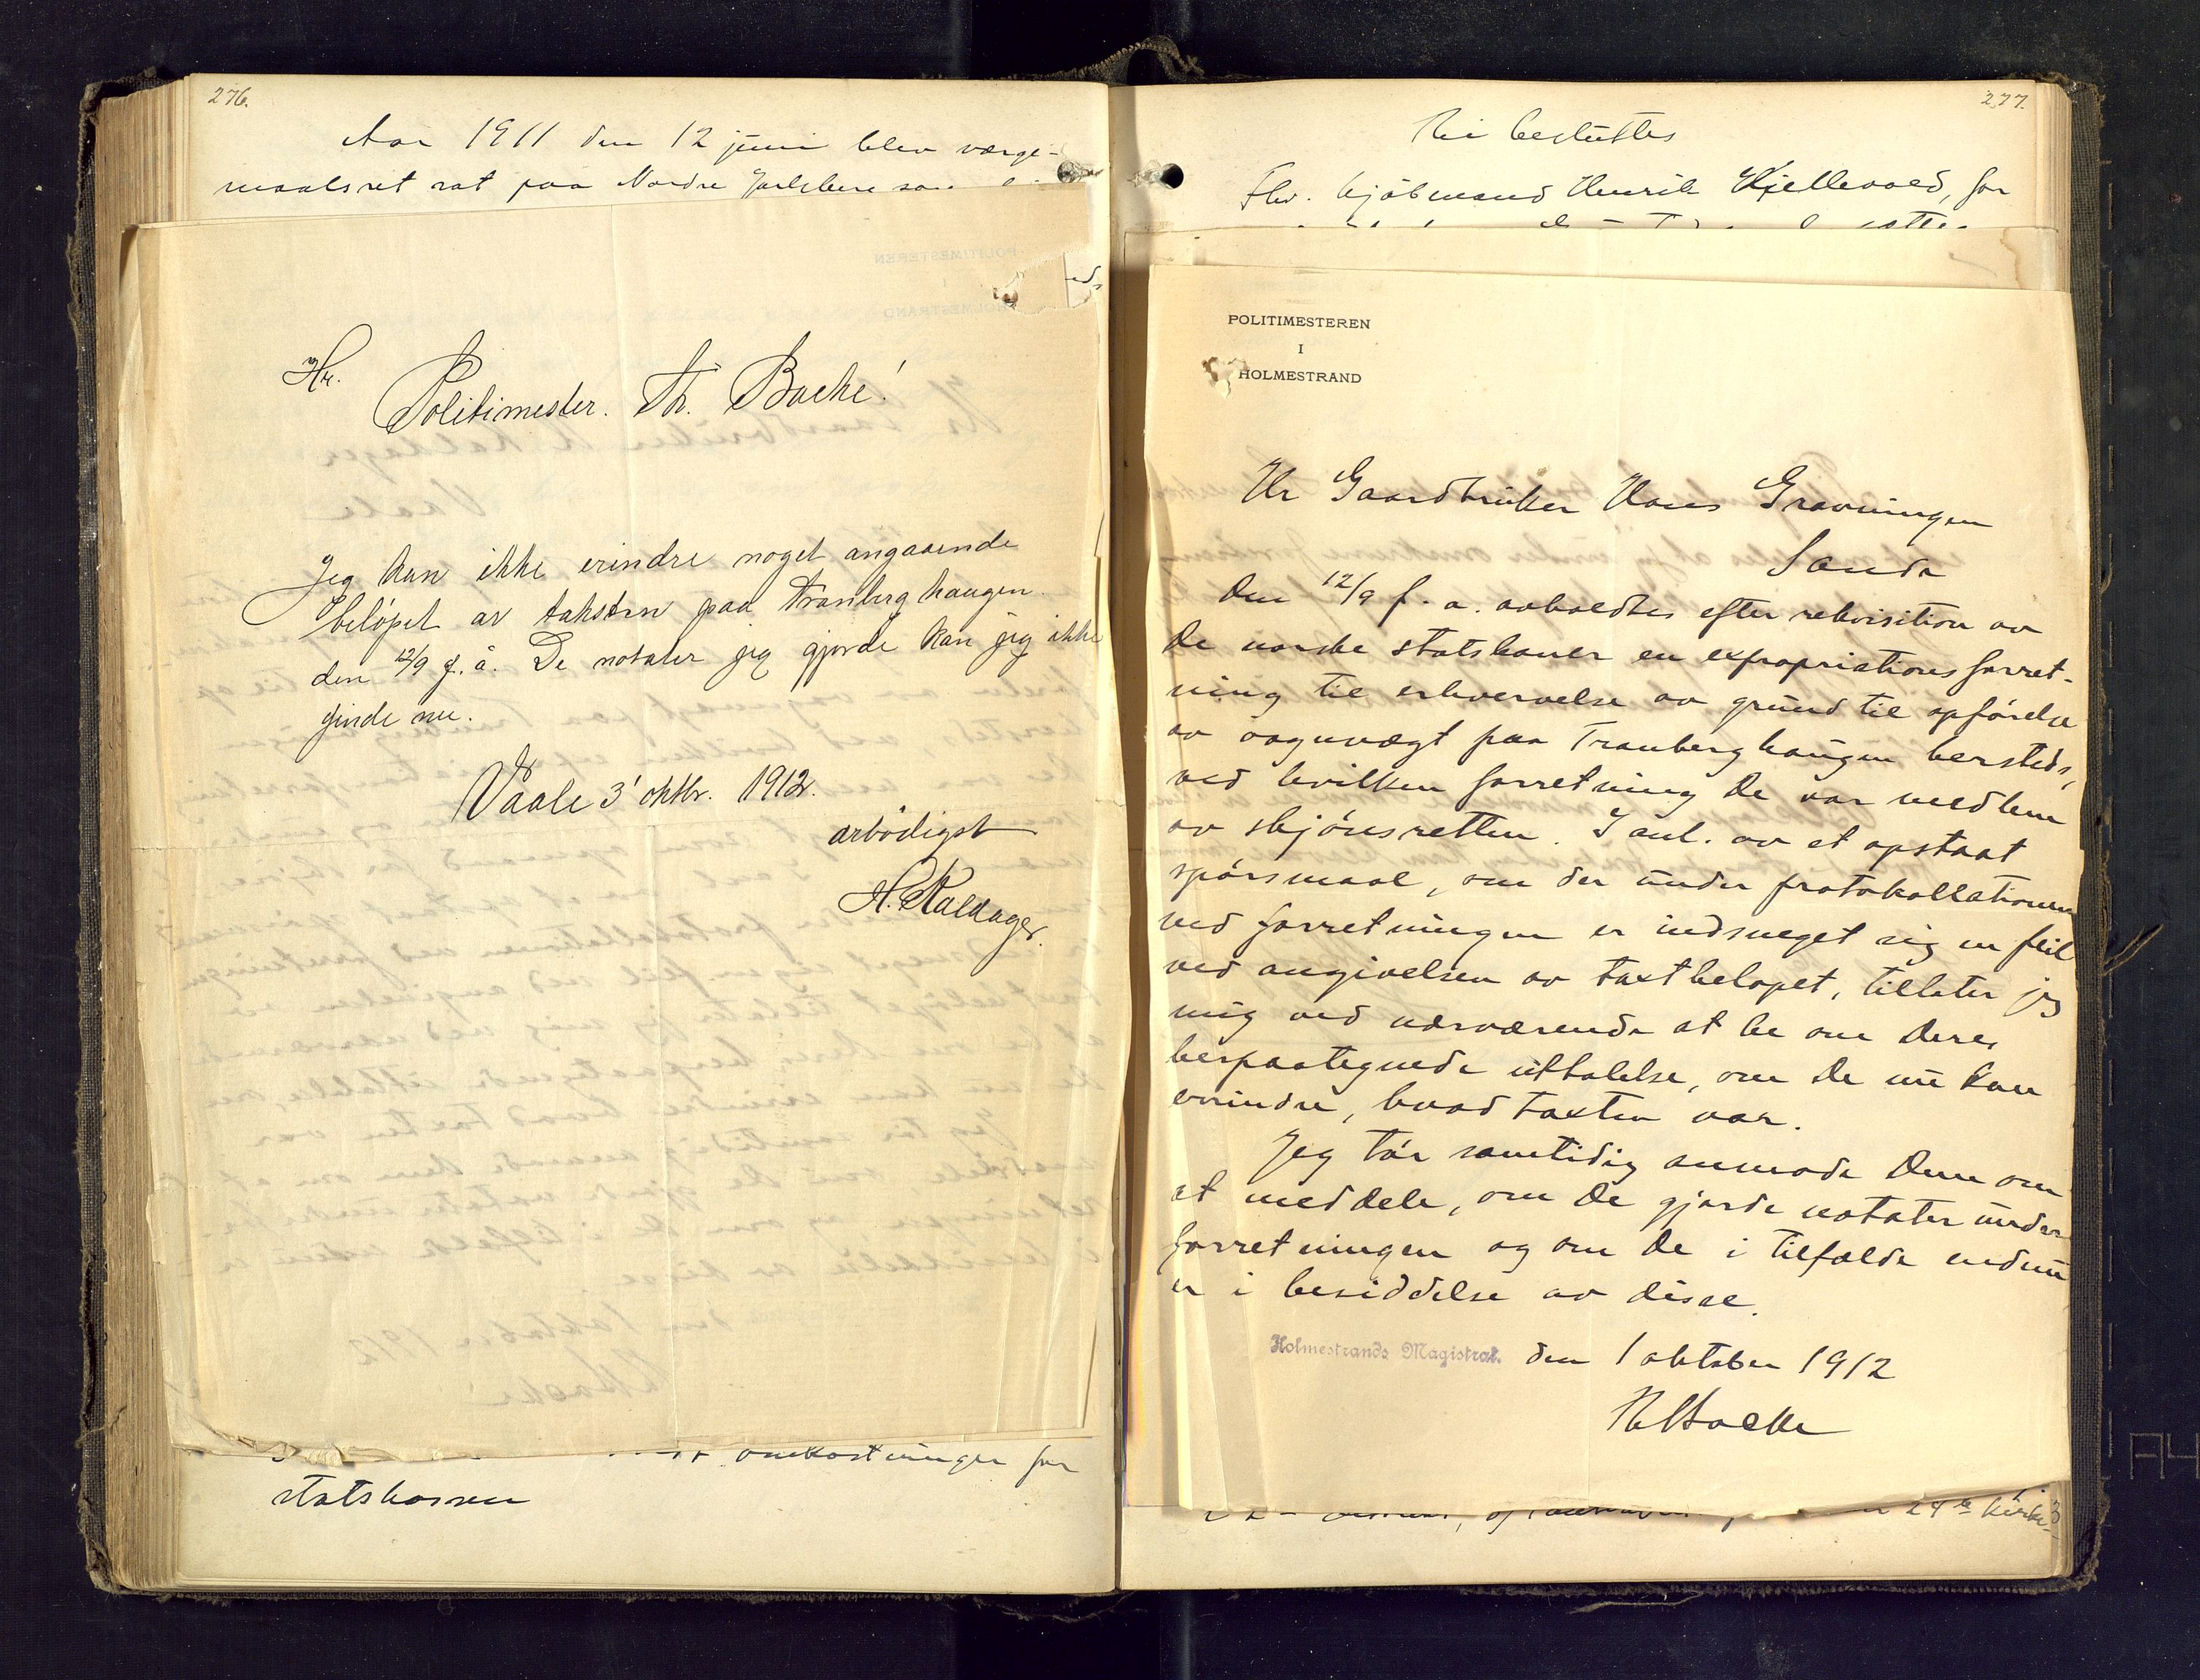 276.
Aar 1911 den 12 juni blev værge-
maalsret sat paa Nordre Jarlsberg
Hr.
Politimester. Th. Backe!
Jeg kan ikke erindre noget angaaende
beløpet av taksten paa Tranberghaugen.
den 12/9 f. å. De notater jeg gjorde kan jeg ikke
finde nu.
Våale 3' oktbr. 1912.
ærbödigst
H. Kaldager.
omkostninger for
statskassen
277.
beslüttes
Fhv. kjöbmand Henrik Kjellevold, for
POLITIMESTEREN
I
HOLMESTRAND
Hr Gaardbrüker Hans Gravningen
Sande
Den 12/9 f. a. avholdtes efter rekvisition av
de norske statsbaner en expropriationsforret-
ning til erhvervelse av gründ til opförelse
av vognvægt paa Tranberghaügen hersteds,
ved hvilken forretning De var medlem
av skjönsretten. I anl. av et opstaat
spörsmaal, om der ünder protokollationen
ved forretningen er indsneget sig en feil
ved angivelsen av taxtbelöpet, tillater jeg
mig ved nærværende at be om Deres
herpaategnede üttalelse, om De nü kan
erindre, hvad taxten var.
Jeg tör samtidig anmode Dem om
at meddele, om De gjorde notater ünder
forretningen og om De i tilfælde endnü
er i besiddelse av disse.
Holmestrands Magistrat. den 1 oktober 1912
ThBacke
24de